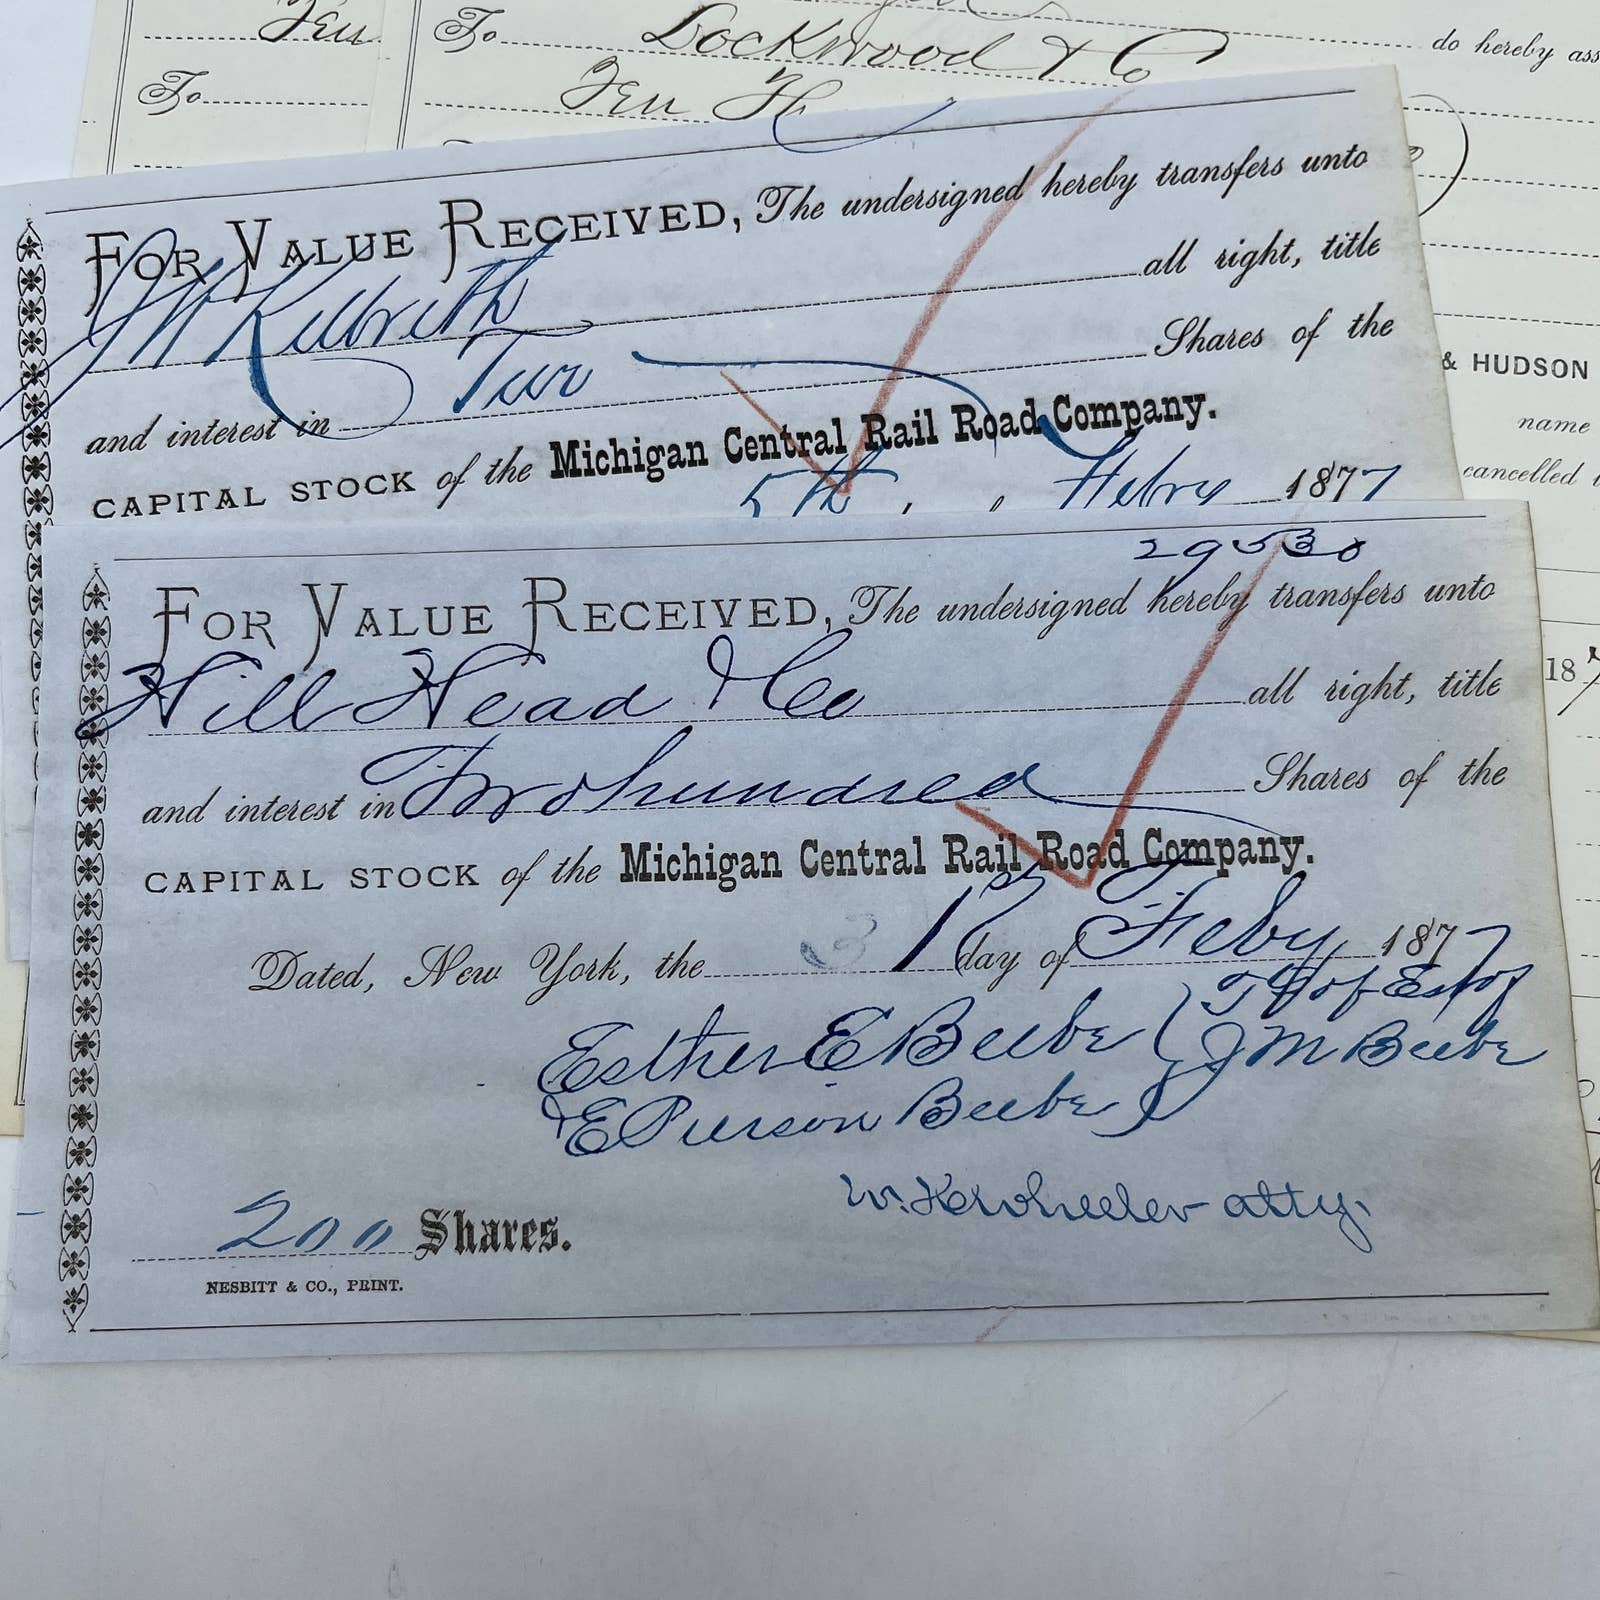 Ten
To
To Lockwood & Co
do hereby ass
Ten
& HUDSON
name
cancelled
187
FOR VALUE RECEIVED, The undersigned hereby transfers unto
J W Kilbreth all right, title
and interest in Two Shares of the
CAPITAL STOCK of the Michigan Central Rail Road Company.
5th Febry 1877
29530
FOR VALUE RECEIVED, The undersigned hereby transfers unto
Hill Head & Co all right, title
and interest in Two hundred Shares of the
CAPITAL STOCK of the Michigan Central Rail Road Company.
Dated, New York, the 1st day of Feby 1877
Esther E Beebe
& E Pierson Beebe
J M Beebe
W. H. Wheeler atty.
200 Shares.
NESBITT & CO., PRINT.